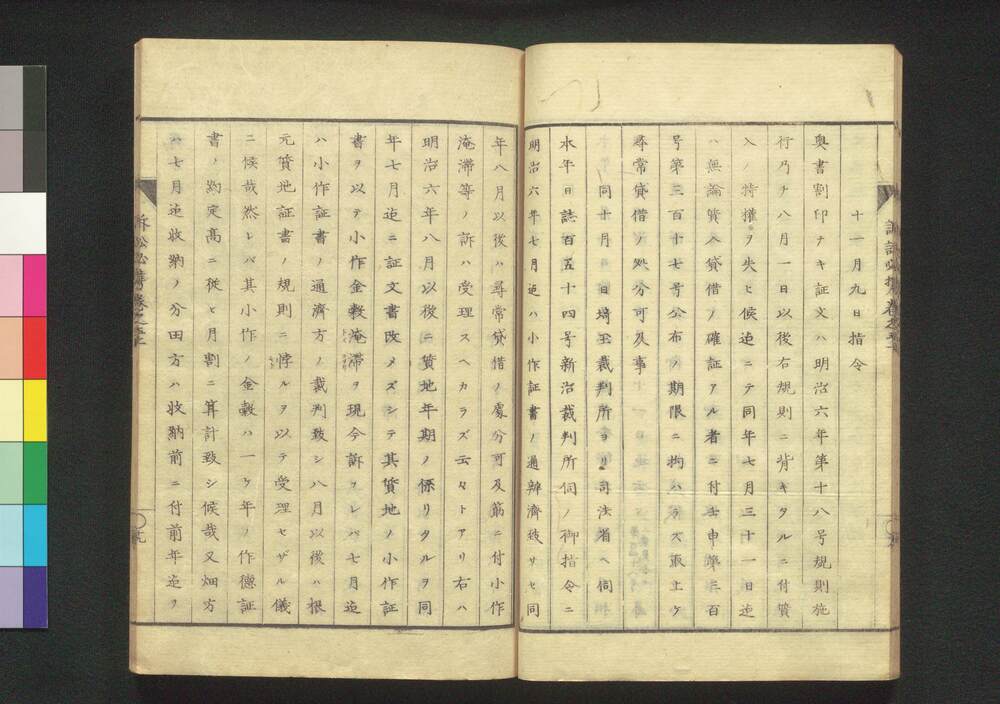 十一月九日指令
奥書割印ナキ証文ハ明治六年第十八号規則施
行乃チ八月一日以後右規則ニ背キタルニ付質
入ノ特権ヲ失ヒ候迄ニテ同年七月三十一日迄
ハ無論質入貸借ノ確証アル者ニ付壬申第三百
号第三百十七号公布ノ期限ニ拘ハラズ取上ケ
尋常貸借ノ処分可及事
同十月 日埼玉裁判所ヨリ司法省ヘ伺
本年日誌百五十四号新治裁判所伺ノ御指令ニ
明治六年七月迄ハ小作証書ノ通辨済致サセ同
年八月以後ハ尋常貸借ノ處分可及筋ニ付小作
淹滞等ノ訴ハ受理スヘカラズ云々トアリ右ハ
明治六年八月以後ニ質地年期ノ係リタルヲ同
年七月迄ニ証文書改メズシテ其質地ノ小作証
書ヲ以テ小作金穀淹滞ヲ現今訴フレバ七月迄
ハ小作証書ノ通済方ノ裁判致シ八月以後ハ根
元質地証書ノ規則ニ悖ルヲ以テ受理セザル儀
ニ候哉然レバ其小作ノ金穀ハ一ケ年ノ作徳証
書ノ約定高ニ従ヒ月割ニ算計致シ候哉又畑方
ハ七月迄收納ノ分田方ハ收納前ニ付前年迄ヲ